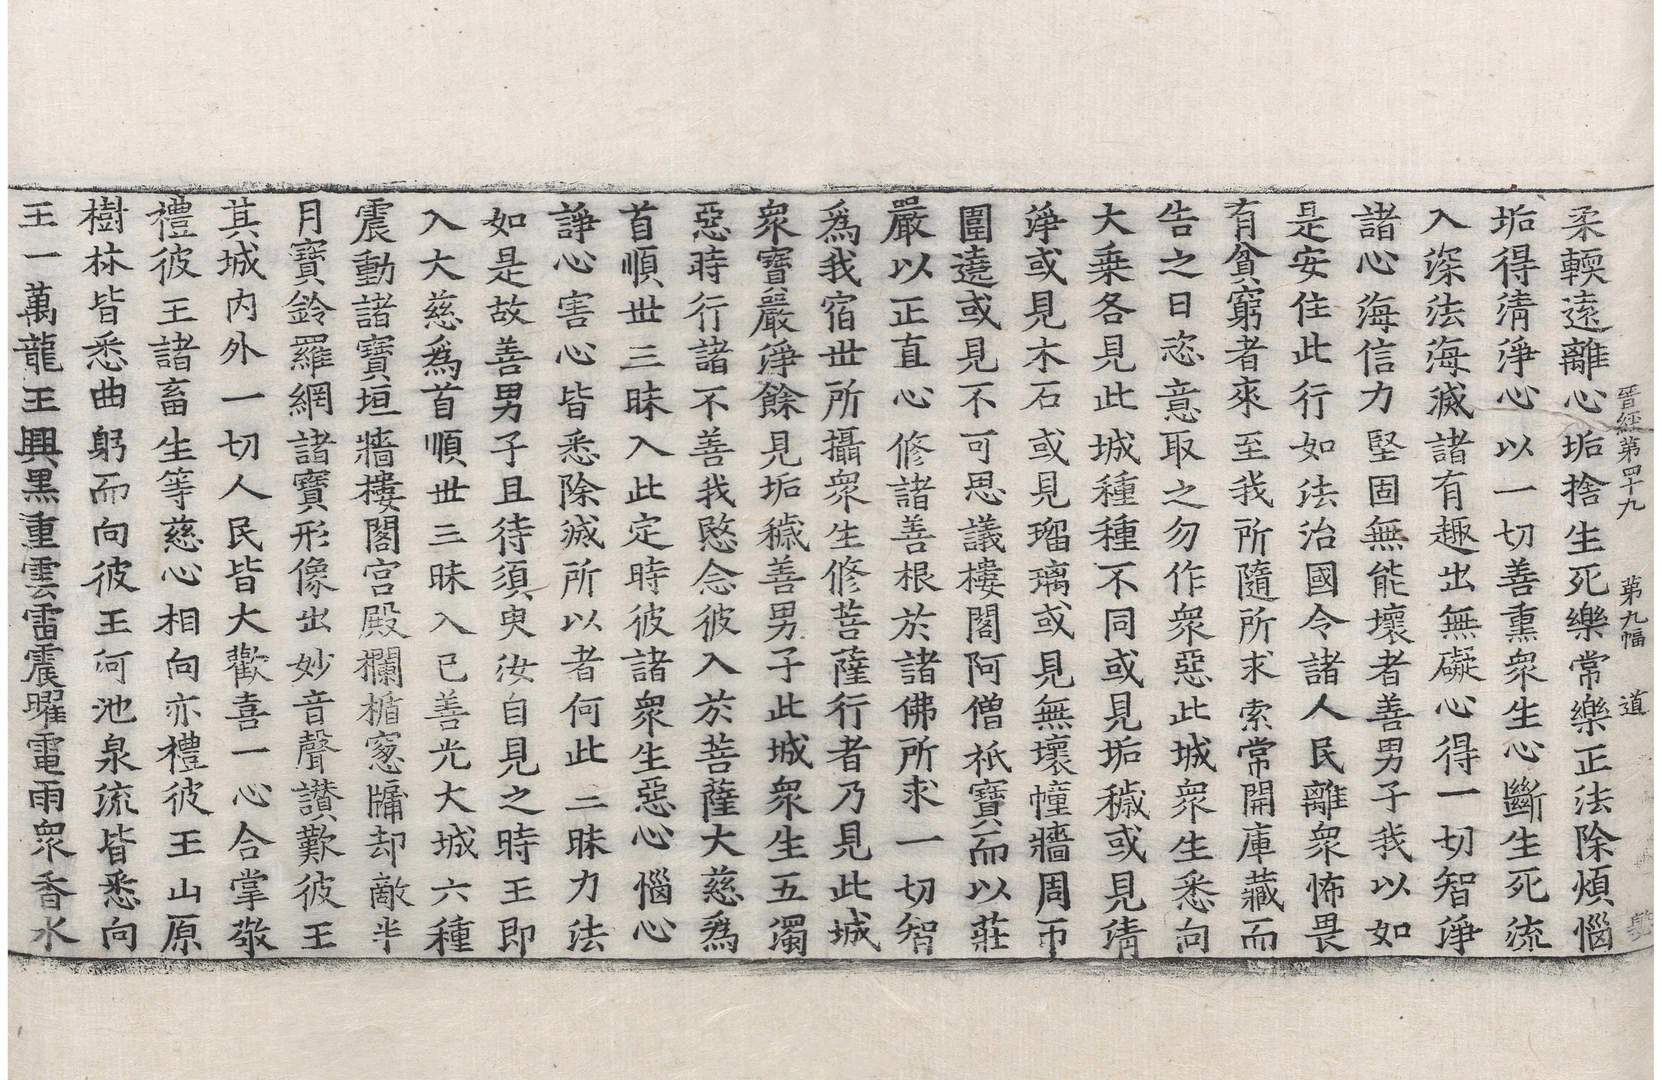 晉經第四十九　第九幅　道
柔輭遠離心垢捨生死樂常樂正法除煩惱
垢得清淨心以一切善熏衆生心斷生死流
入深法海滅諸有趣出無礙心得一切智淨
諸心海信力堅固無能壞者善男子我以如
是安住此行如法治國令諸人民離衆怖畏
有貧窮者來至我所隨所求索常開庫藏而
告之曰恣意取之勿作衆惡此城衆生悉向
大乗各見此城種種不同或見垢穢或見清
淨或見木石或見瑠璃或見無壞幢牆周帀
圍遶或見不可思議樓閣阿僧祇寶而以莊
嚴以正直心修諸善根於諸佛所求一切智
爲我宿世所攝衆生修菩薩行者乃見此城
衆寶嚴淨餘見垢穢善男子此城衆生五濁
惡時行諸不善我愍念彼入於菩薩大慈爲
首順世三昧入此定時彼諸衆生惡心惱心
諍心害心皆悉除滅所以者何此三昧力法
如是故善男子且待須臾汝自見之時王即
入大慈爲首順世三昧入已善光大城六種
震動諸寶垣牆樓閣宮殿欄楯窓牖却敵半
月寶鈴羅網諸寶形像出妙音聲讃歎彼王
其城内外一切人民皆大歡喜一心合掌敬
禮彼王諸畜生等慈心相向亦禮彼王山原
樹林皆悉曲躬而向彼王河池泉流皆悉向
王一萬龍王興黒重雲雷震曜電雨衆香水